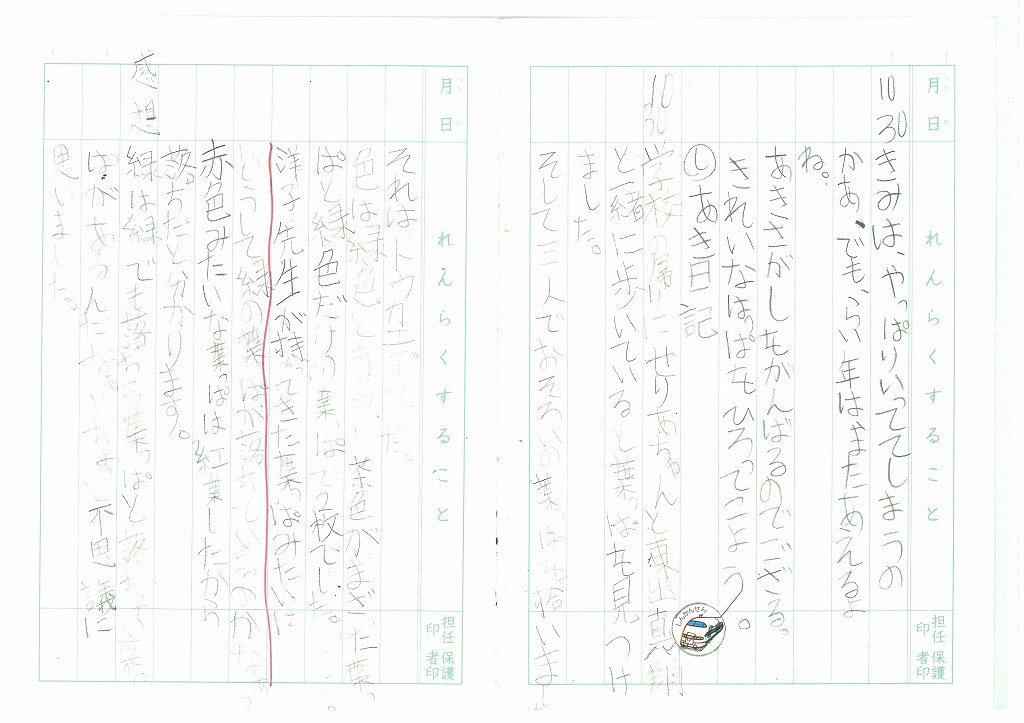 月日
れんらくすること
担任印
保護者印
10 30 きみは、やっぱりいっててしまうの
かあ、でも、らい年はまたあえるよ
ね。
あきさがしもがんばるのでござる。
きれいなはっぱもひろってこよう。
しんかんせん
し あき日記
10 30 学校の帰にせりあちゃんと
と一緒に歩いていると葉っぱを見つけ
ました。
そして三人でおそろいの葉っぱを拾いまし
月日
れんらくすること
担任印
保護者印
それはトウカエデでした。
色は緑色と赤色と茶色がまざった葉っ
ぱと緑色だけの葉っぱで
洋子先生が持ってきた葉っぱみたいに
どうして緑の葉っぱが落ちているのかなあ
赤色みたいな葉っぱは紅葉したから
落ちたと分かります。
感想 緑は緑でも落ちる葉っぱと落ちない葉っ
ぱがあるんだなあとちょっと不思議に
思いました。